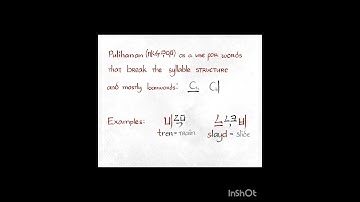 Pulihanan as a use for words
that break the syllable structure
and mostly loanwords:
Examples:
tren = train slayd = slide
InShOt